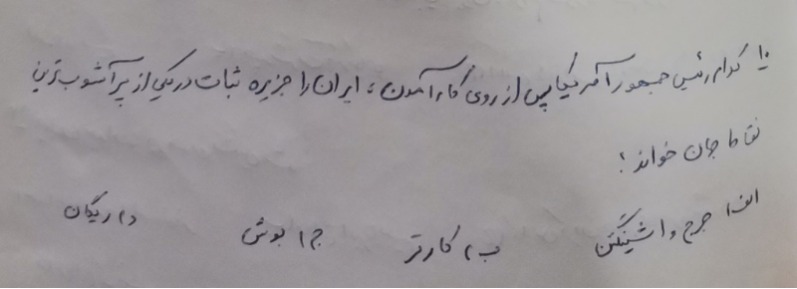 ۱۰) کدام رئیس جمهور آمریکا پس از روی کار آمدن، ایران را جزیره ثبات در یکی از پرآشوب ترین
نقاط جهان خواند؟
الف) جرج واشینگتن ب) کارتر ج) بوش د) ریگان